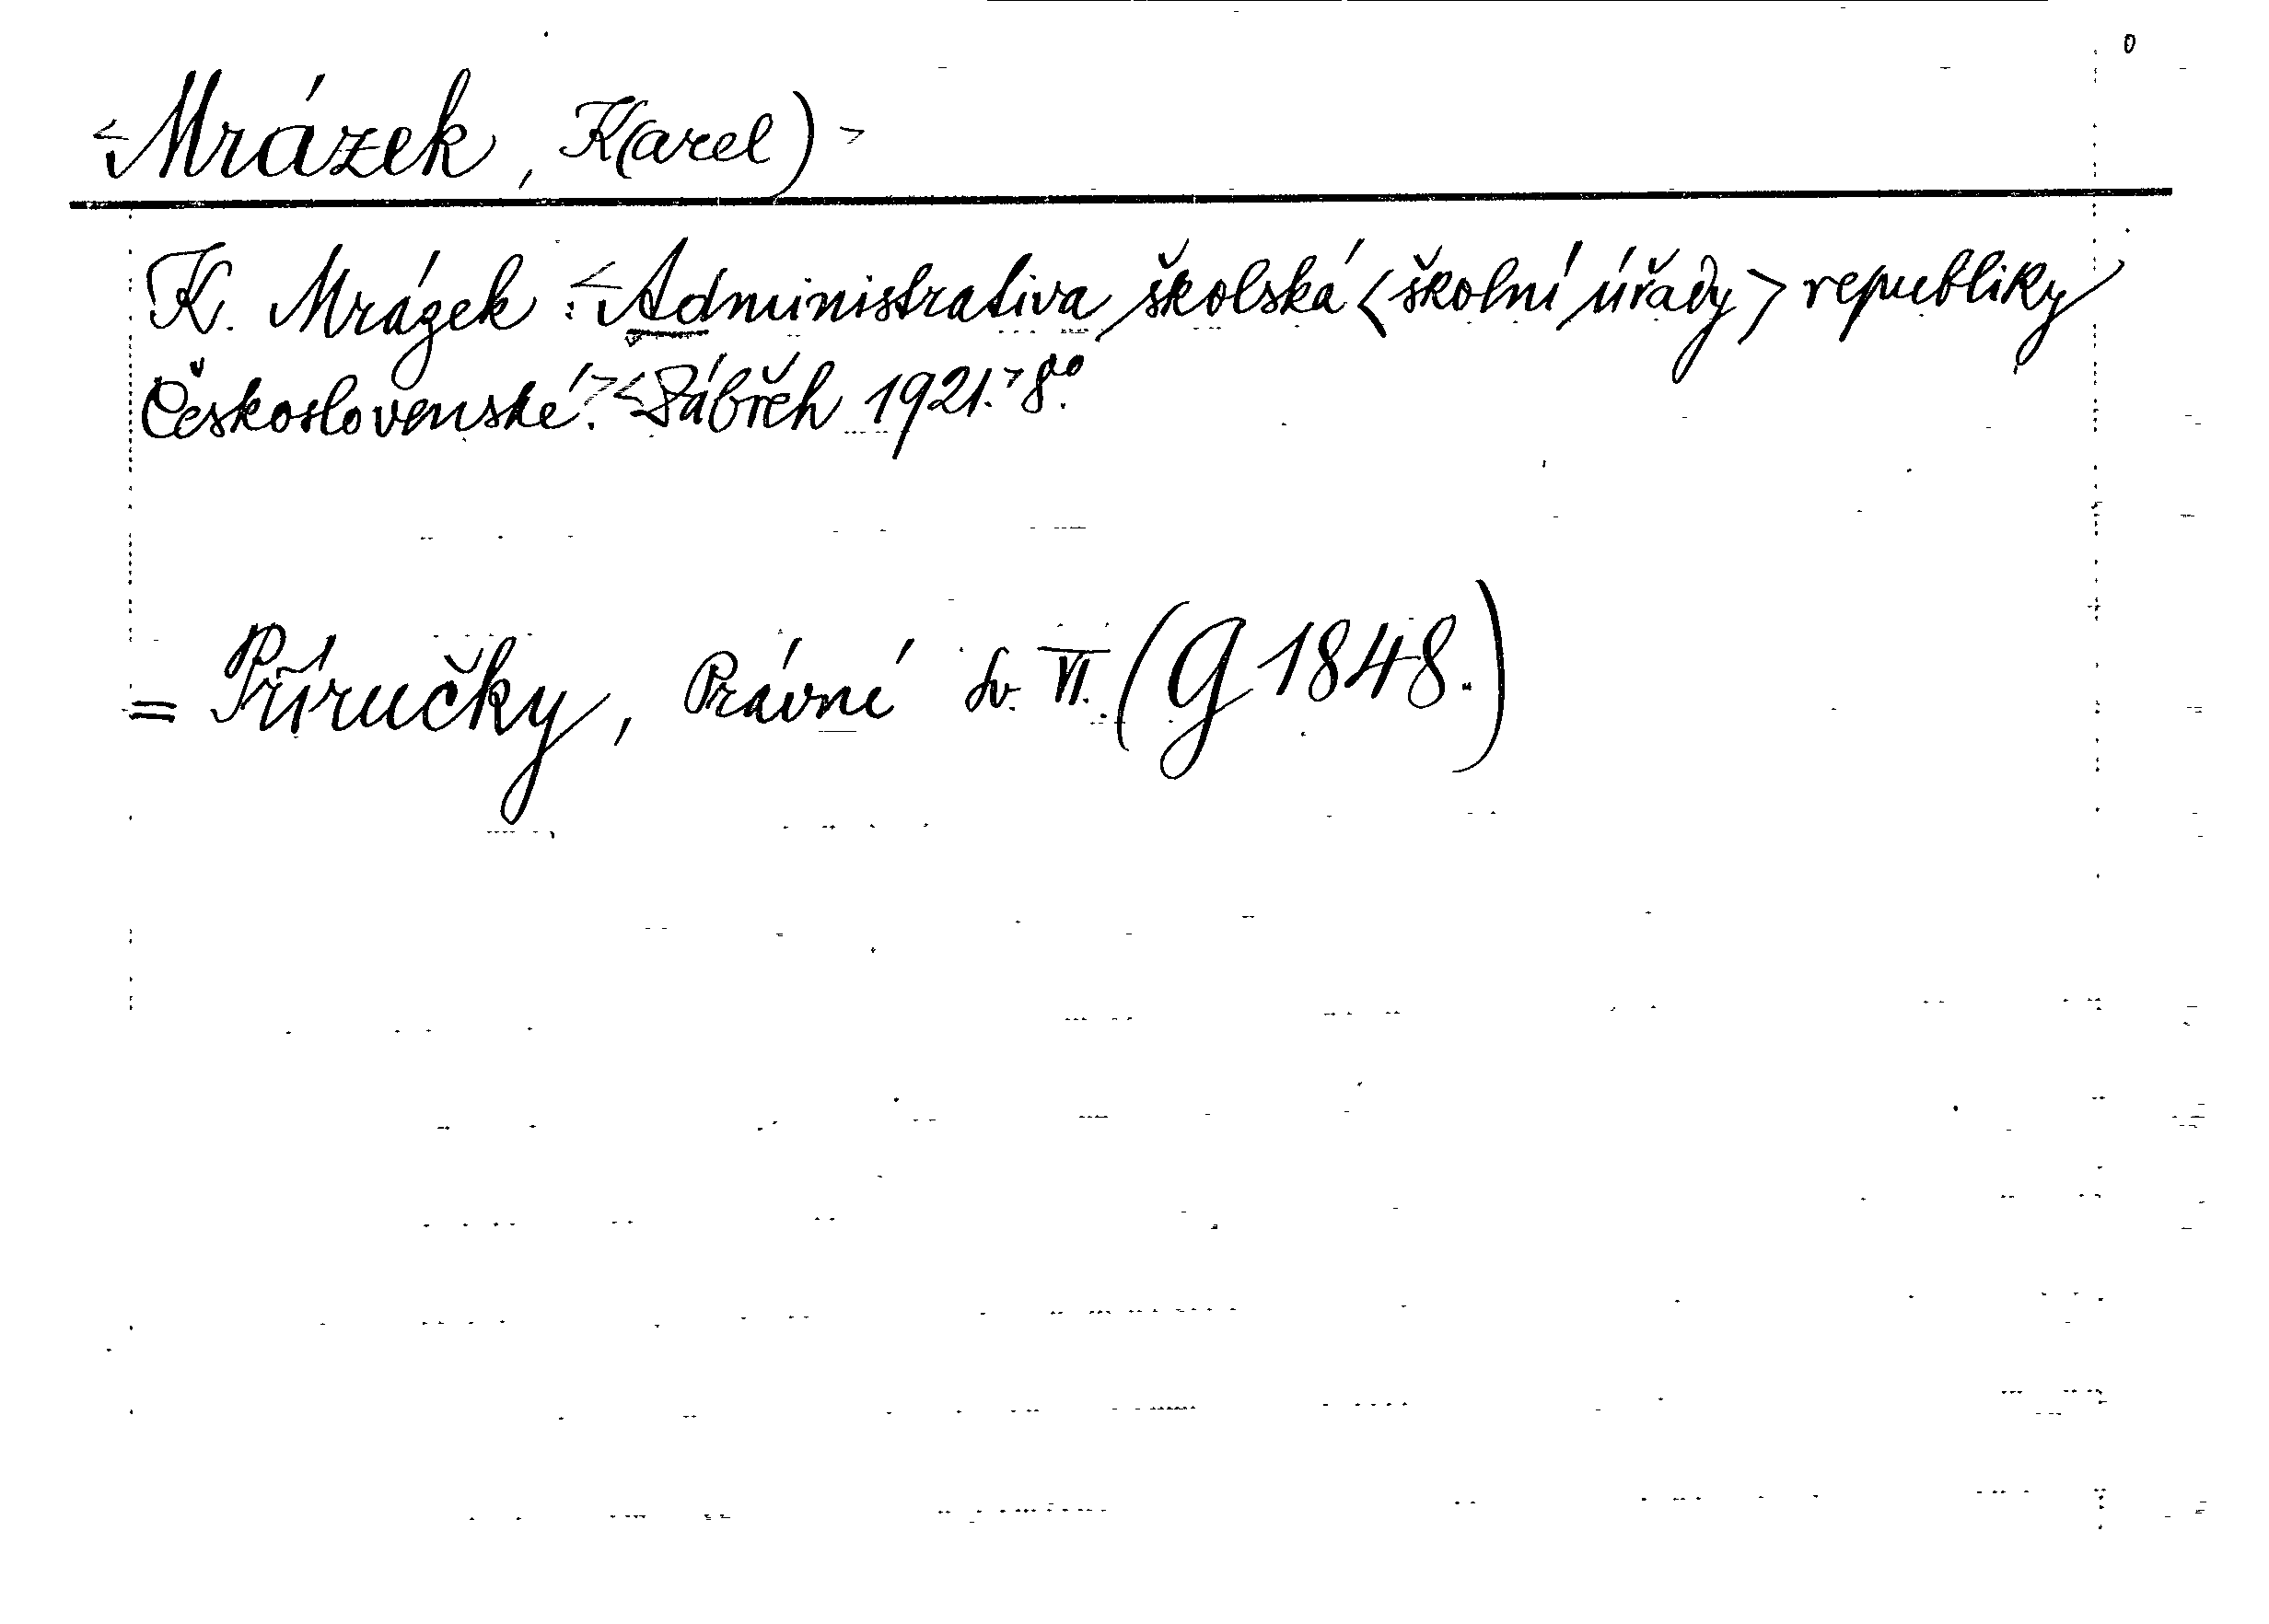 <Mrázek, K(arel)>
K. Mrázek: <Administrativa školská <školní úřady> republiky
Československé.> <Zábřeh 1921.> 8°.
= Příručky, Právní sv. VI. (G 1848.)